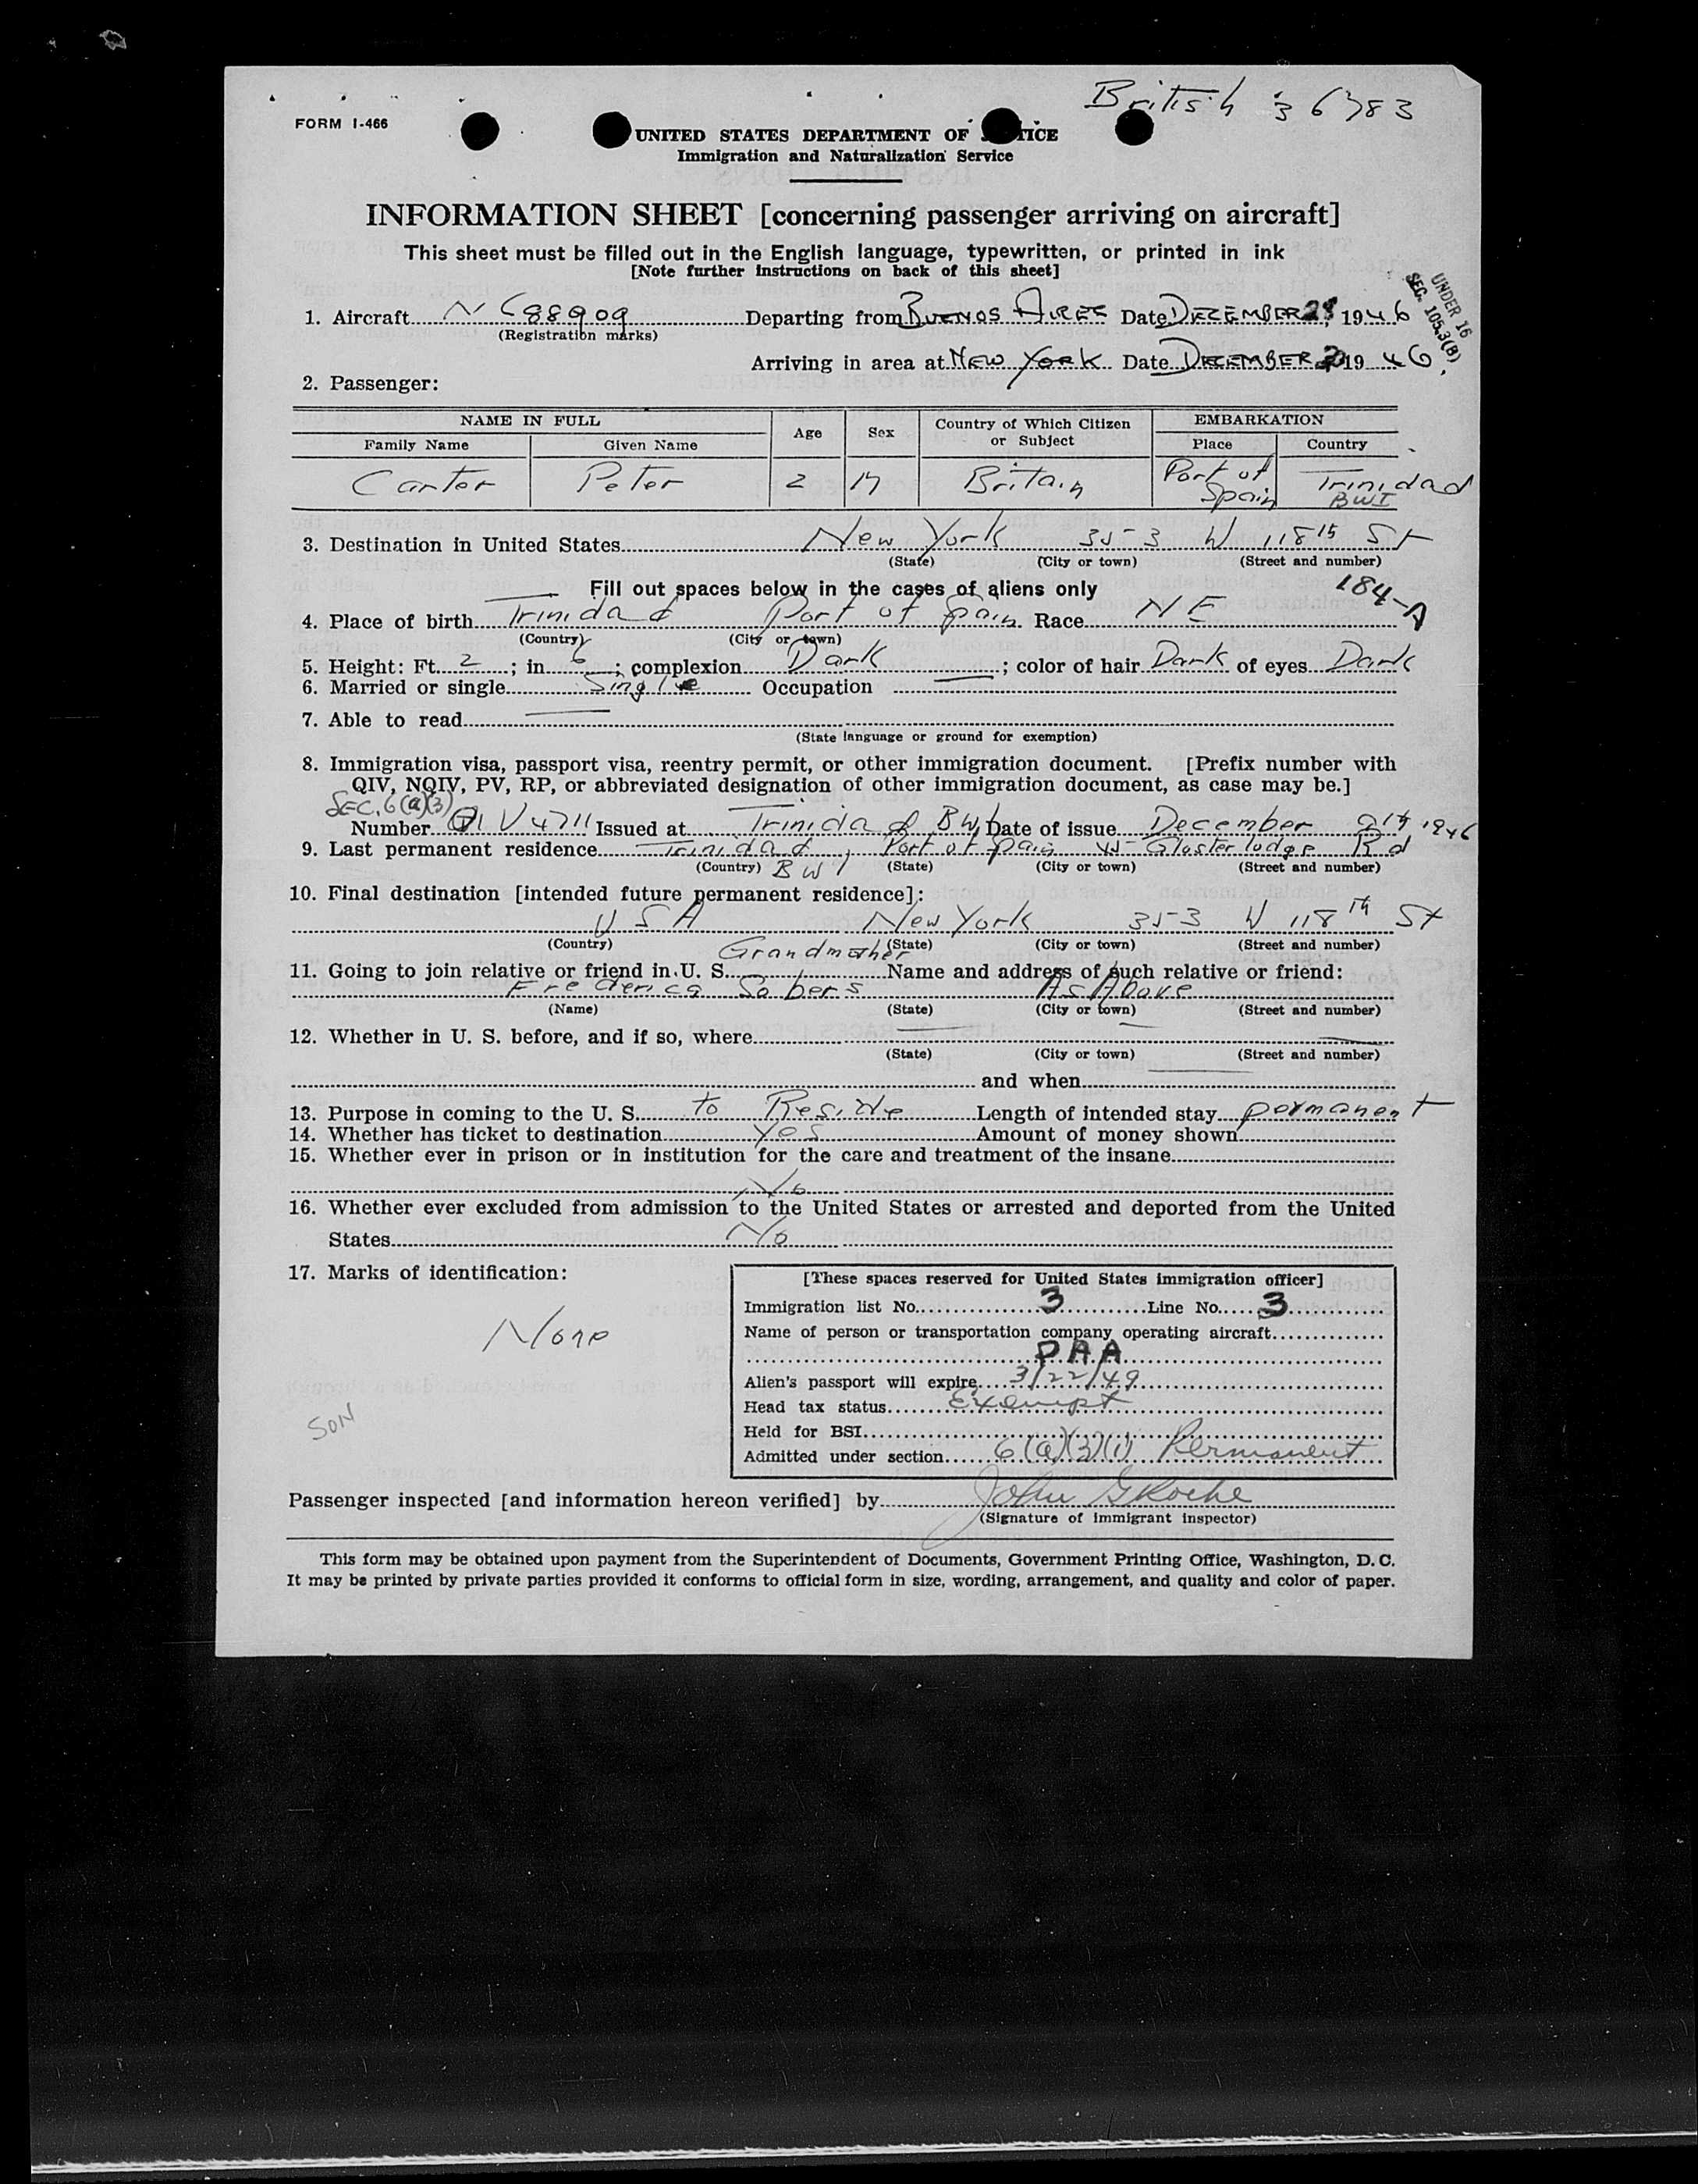 British 36783
FORM I-466
UNITED STATES DEPARTMENT OF TICE
Immigration and Naturalization Service
INFORMATION SHEET [concerning passenger arriving on aircraft]
This sheet must be filled out in the English language, typewritten, or printed in ink
[Note further instructions on back of this sheet]
UNDER 16
SEC. 105.3(B).
1. Aircraft NC88909 Departing from BUENOS AIRES Date DECEMBER 1946
(Registration marks)
Arriving in area at NEW YORK Date DECEMBER 1946
2. Passenger:
NAME IN FULL Age Sex Country of Which Citizen or Subject EMBARKATION
Family Name Given Name Place Country
Carter Peter 2 M Britain Port of Spain Trinidad BWI
3. Destination in United States New York 353 W 118th St
(State) (City or town) (Street and number)
Fill out spaces below in the cases of aliens only
184-A
4. Place of birth Trinidad Port of Spain Race NE
(Country) (City or town)
5. Height: Ft. 2; in 6; complexion Dark; color of hair Dark of eyes Dark
6. Married or single Single Occupation
7. Able to read
(State language or ground for exemption)
8. Immigration visa, passport visa, reentry permit, or other immigration document. [Prefix number with
QIV, NQIV, PV, RP, or abbreviated designation of other immigration document, as case may be.]
SEC. 6(a)(3)
Number QIV 4711 Issued at Trinidad BWI Date of issue December 1946
9. Last permanent residence Trinidad, Port of Spain Gloster lodge Rd
(Country) BWI (State) (City or town) (Street and number)
10. Final destination [intended future permanent residence]:
USA New York 353 W 118th St
(Country) (State) (City or town) (Street and number)
Grandmother
11. Going to join relative or friend in U. S. Name and address of such relative or friend:
Frederica Sobers As Above
(Name) (State) (City or town) (Street and number)
12. Whether in U. S. before, and if so, where
(State) (City or town) (Street and number)
and when
13. Purpose in coming to the U. S. to Reside Length of intended stay permanent
14. Whether has ticket to destination yes Amount of money shown
15. Whether ever in prison or in institution for the care and treatment of the insane
No
16. Whether ever excluded from admission to the United States or arrested and deported from the United
States No
17. Marks of identification:
None
SON
[These spaces reserved for United States immigration officer]
Immigration list No. 3 Line No. 3
Name of person or transportation company operating aircraft
PAA
Alien's passport will expire 3/22/49
Head tax status Exempt
Held for BSI
Admitted under section 6(a)(3)(1) Permanent
Passenger inspected [and information hereon verified] by John G Roche
(Signature of immigrant inspector)
This form may be obtained upon payment from the Superintendent of Documents, Government Printing Office, Washington, D. C.
It may be printed by private parties provided it conforms to official form in size, wording, arrangement, and quality and color of paper.